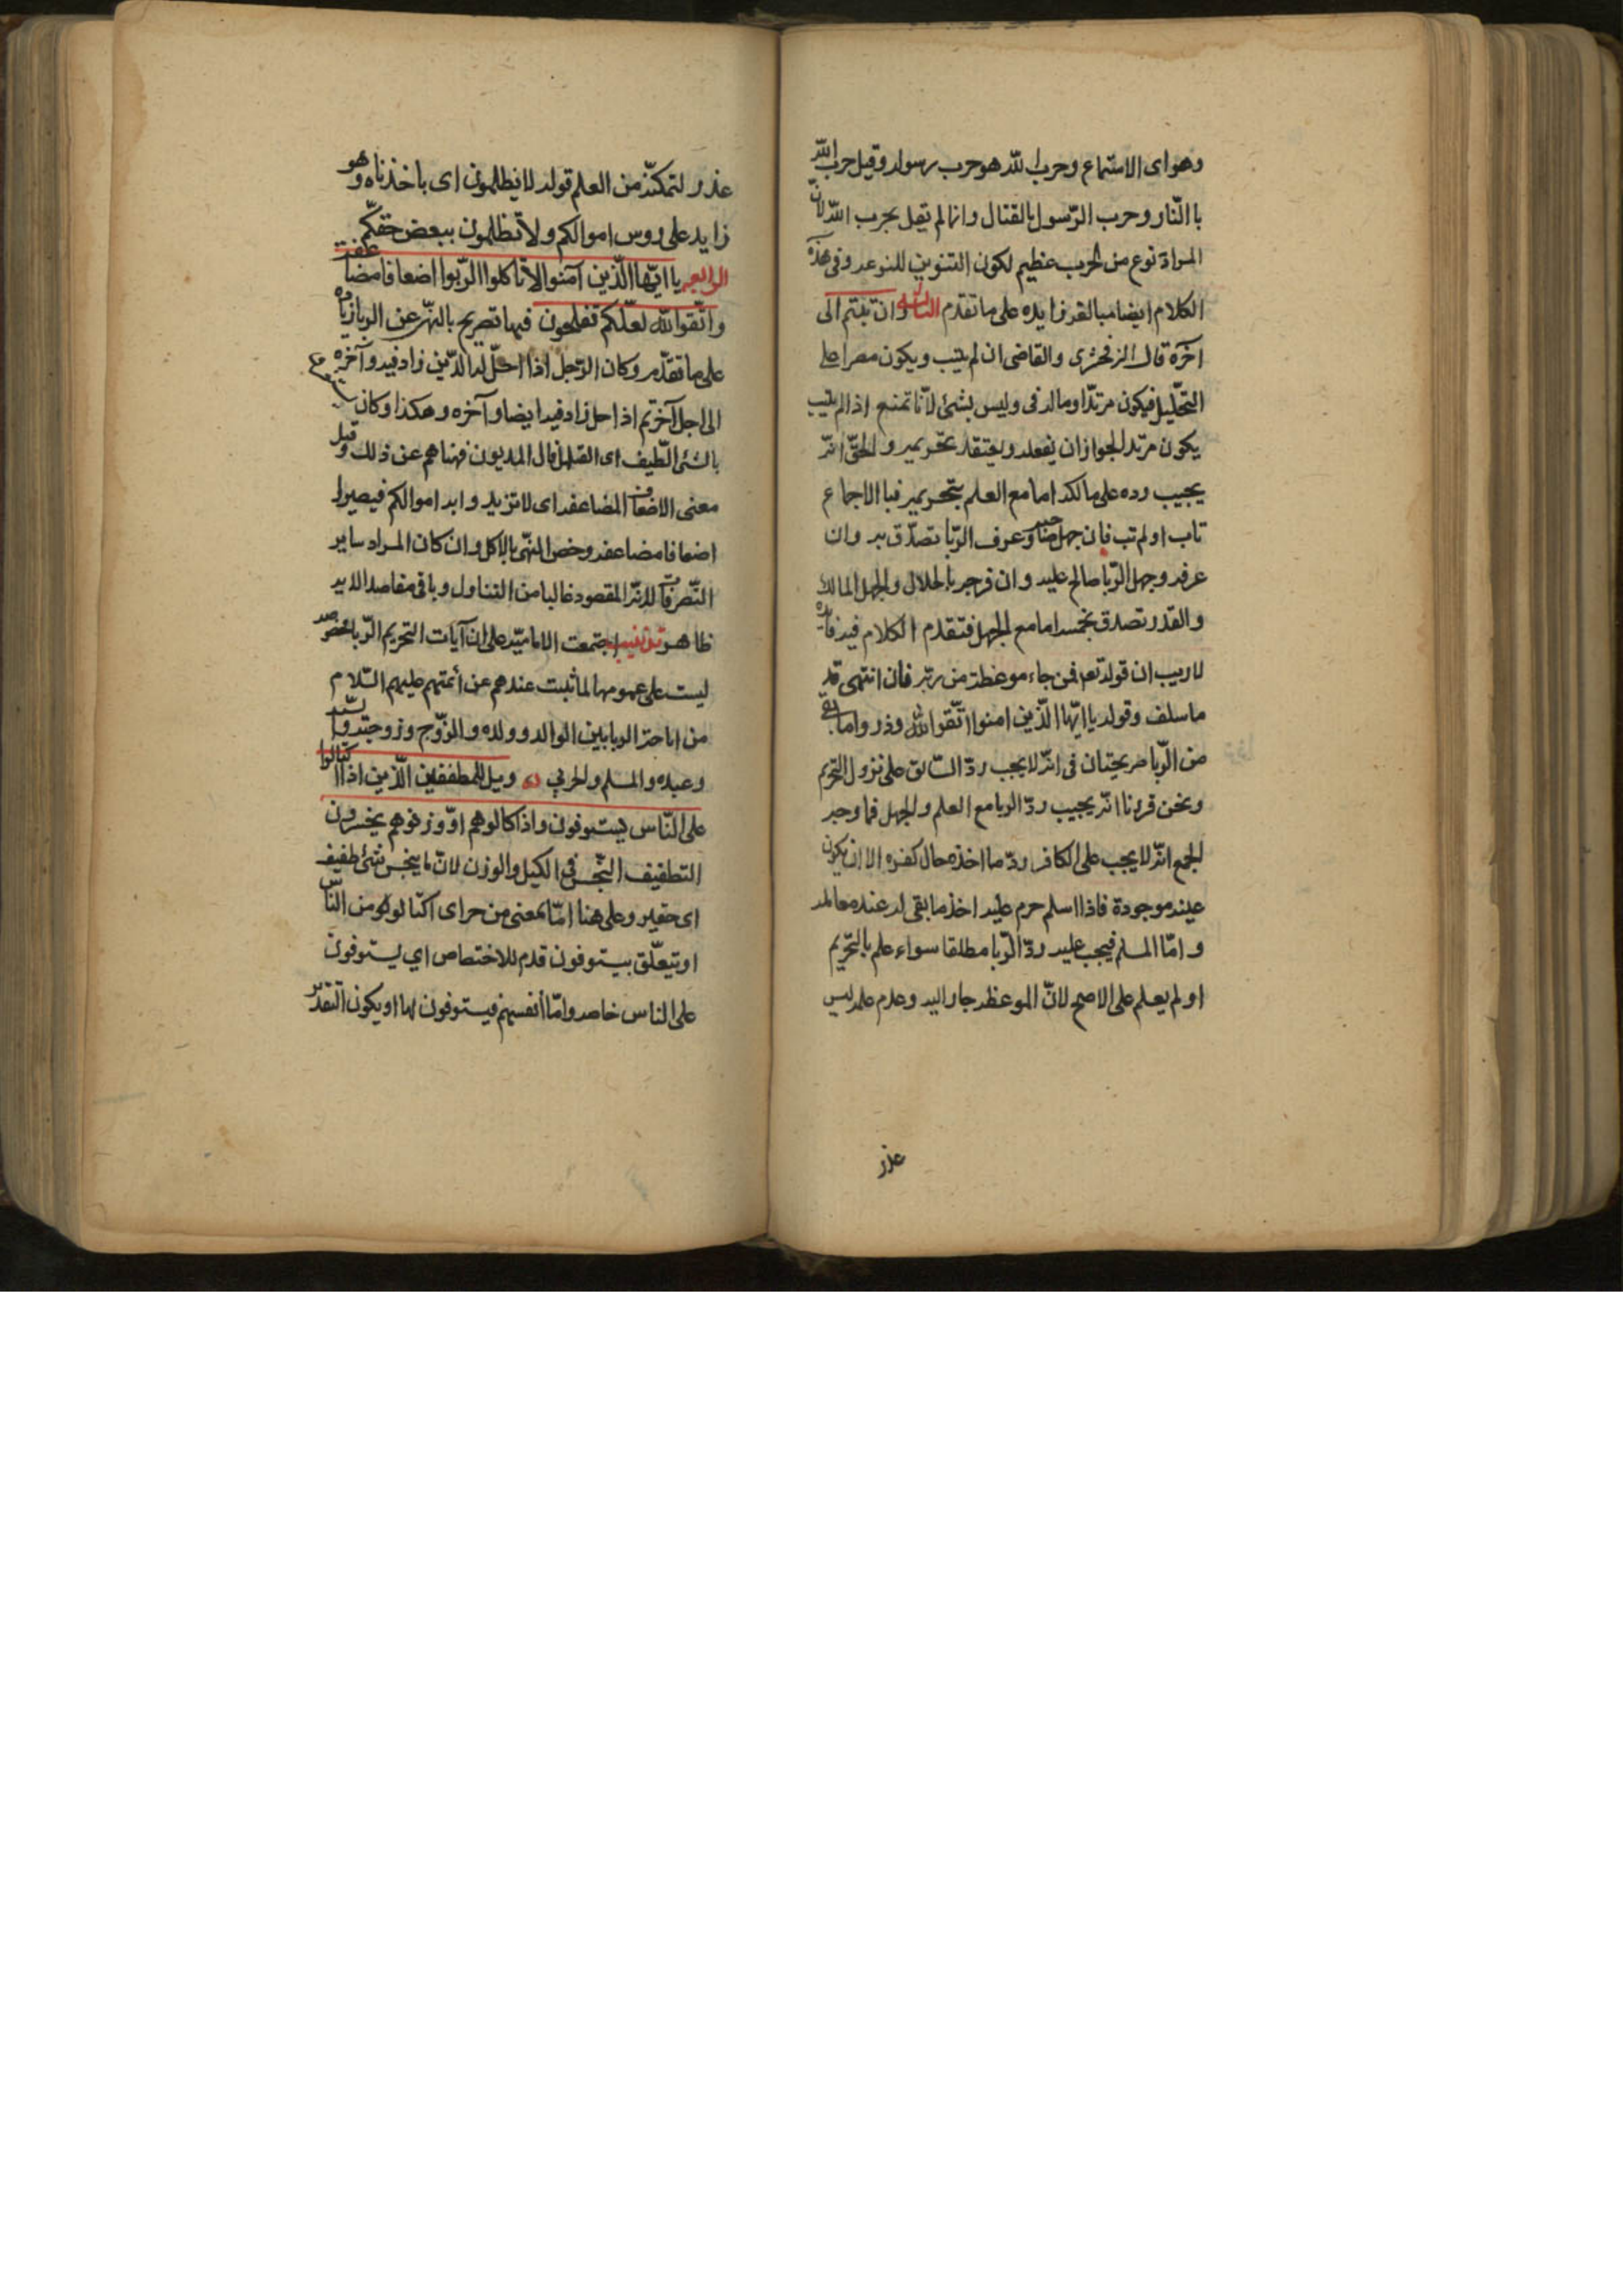 وهو اى الاستماع وحرب الله هو حرب رسوله وقيل حرب الله
با النّار وحرب الرّسول بالقتال وانما لم يقل بحرب الله لانّ
المراد نوع من الحرب عظيم لكون التنوين للنوعه وفى هذه
الكلام ايضا مبالغه زايده على ما تقدم الثالثه وان تبتم الى
آخره قال الزمخشرى والقاضى ان لم يتب ويكون مصرا على
التحليل فيكون مرتدّا وماله فى وليس بشئ لأنّا نمنع اذا لم يتب
يكون مرتد الجواز ان يفعله ويعتقد تحريمه والحقّ انّه
يجيب رده على مالكه اما مع العلم بتحريمه فبا الاجماع
تاب او لم تب فان جهل صاحبه وعرف الرّبا تصدّق به وان
عرفه وجهل الرّبا صالح عليه وان مزجه بالحلال والجهل المالك
والقدر تصدق بخمسه اما مع الجهل فتقدم الكلام فيه فايده
لاريب ان قوله تعم فمن جاءه موعظة من ربّه فان انتهى قد
ما سلف وقوله يا ايّها الّذين امنوا اتّقوا الله وذروا ما بقى
من الرّبا صريحتان فى انّه لايجب ردّ السّابق على نزول التحريم
ونحن قررنا انّه يجيب ردّ الربا مع العلم والجهل فما وجه
الجمع انّه لايجب على الكافر ردّ ما اخذه حال كفره الا ان يكون
عينه موجودة فاذا اسلم حرم عليه اخذ ما بقى له عند معامله
وامّا المسلم فيجب عليه ردّ الرّبا مطلقا سواء علم بالتّحريم
او لم يعلم على الاصح لانّ الموعظه جار اليه وعدم علمه ليس
عذر
عذر لتمكنّه من العلم قوله لا يظلمون اى باخذناه وهو
زايد على روس اموالكم ولا تظلمون ببعض حقكّم
الرابعه يا ايّها الّذين آمنوا لا تأكلوا الرّبوا اضعافا مضاعفة
واتّقوا الله لعلّكم تفلحون فيها تصريح بالنهّى عن الربا زياده
على ما تقدّم وكان الرّجل اذا احلّ له الدّين زاد فيه وآخره
الى اجل آخر ثم اذا احل زاد فيه ايضا وآخره وهكذا وكان
بالشئ الطّيف اى القليل مال المديون فنهاهم عن ذلك وقيل
معنى الاضعاف المضاعفه اى لا تزيدوا به اموالكم فيصيرا
اضعافا مضاعفه وخص النهّى بالاكل وان كان المراد ساير
التّصرفات لانّه المقصود غالبا من التناول وباقى مقاصد الايه
ظاهر اجتمعت الاماميّه على ان آيات التحريم الرّبا
ليست على عمومها لما ثبت عندهم عن أئمتهم عليهم السّلام
من اباحة الربا بين الوالد وولده والزّوج وزوجته والسّيد
وعبده والمسلم والحربي ويل للمطففين الّذين اذا اكتالوا
على النّاس يستوفون واذا كالوهم او وزنوهم يخسرون
التطفيف البّخس فى الكيل والوزن لانّ ما يبخس شئ طفيف
اى حقير وعلى هنا امّا بمعنى من حراى اكتالوا من النّاس
او تيعلّق بيستوفون قدم للاختصاص اي يستوفون
على الناس خاصه وامّا أنفسهم فيستوفون لها او يكون التقدير